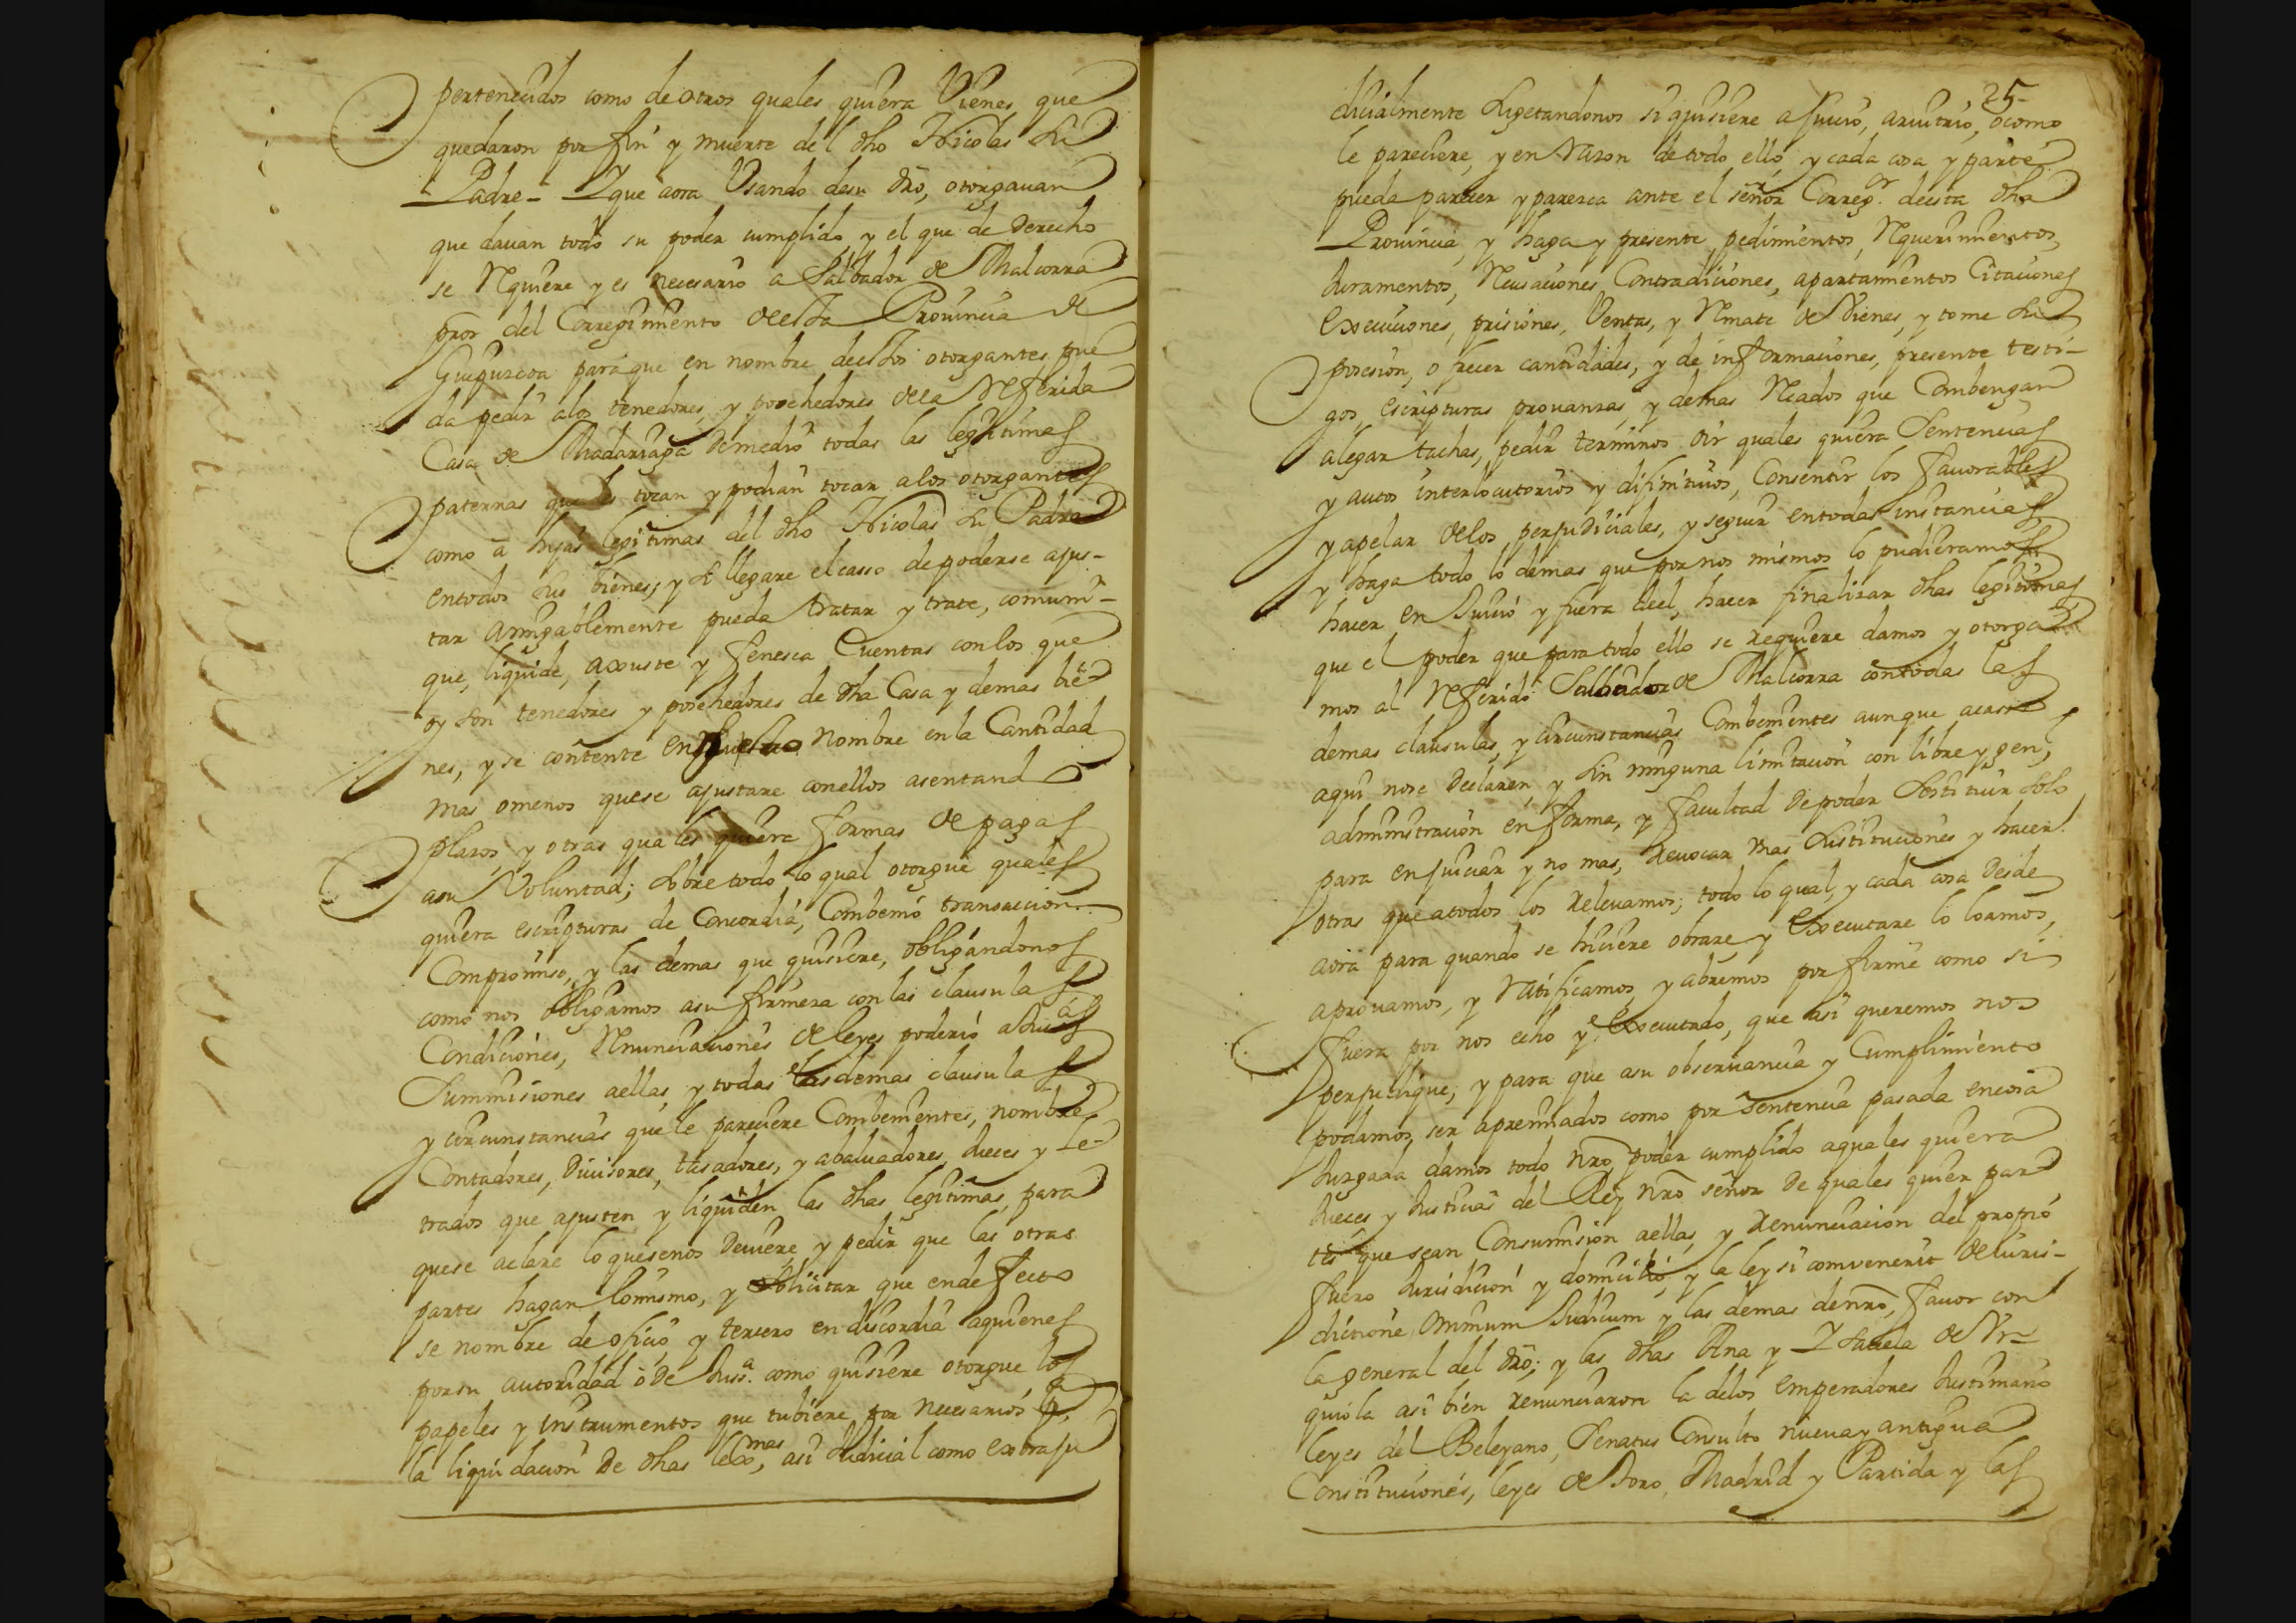 pertenecidos como de otros quales quiera Vienes que
quedaron por fin y muerte del dho Nicolas su
Padre - Y que aora Usando de su dro, otorgauan
que dauan todo su poder cumplido y el que de derecho
se Requiere y es necesario a Salbador de Malcorra
pror del Corregimiento deesta Prouincia de
Guipuzcoa para que en nombre deestos otorgantes pue
da pedir alos tenedores, y posehedores dela Referida
Casa de Madariaga de medio todas las legitimas
paternas que les tocan y podian tocar alos otorgantes
como a hijas legitimas del dho Nicolas su Padre
entodos sus bienes; y si llegare el casso de poderse ajus-
tar amigablemente pueda tratar y trate, comuni-
que, liquide, axuste y fenesca Cuentas con los que
oy son tenedores y posehedores de dha Casa y demas bie
nes, y se contente en nuestro nombre en la Cantidad
mas omenos quese ajustare conellos asentand
plazos, y otras quales quiera formas de pagas
asu Voluntad; sobre todo lo qual otorgue quales
quiera escripturas de Concordia, Combenio transaccion
Compromiso, y las demas que quisiere, obligandonos
como nos obligamos asu firmeza con las clausulas
Condiciones, Renunciaciones de leyes poderio a Jusas
Summisiones aellas, y todas las demas clausulas
y circunstancias quele pareciere Combenientes, nombre
Contadores, Diuisores, tasadores, y abaluadores Jueces y le-
trados que ajusten y liquiden las dhas legitimas, para
quese aclare lo quesenos deuiere, y pedir que las otras
partes hagan lo mismo, y solicitar que en defecto
se nombre de oficio y tercero en discordia aquienes
porsu autoridad ò de Juss.a como quisiere otorgue los
papeles y instrumentos que tubiere por necesarios pa
la liquidacion de dhas lexmas, asi Judicial como extraju
25
dicialmente Sugetandonos si quisiere a juicio, aruitrio, ocomo
le pareciere, y en Razon de todo ello y cada cosa y parte
pueda parecer y paresca ante el señor Correg.or deesta dha
Prouincia, y haga y presente pedimientos, Requerimientos,
Juramentos, Recusaciones, Contradiciones, apartamientos Citaciones
execuciones, prisiones, Ventas, y Remate de Vienes, y tome su
posesion, ofrecer cantidades, y de informaciones, presente testi-
gos, escripturas prouanzas, y demas Recados que Combengan
alegar tachas, pedir terminos oir quales quiera Sentencias
y autos interlocutorios y difinitiuos, Consentir los fauorables
y apelar delos perjudiciales, y seguir entodas instancias
y haga todo lo demas que por nos mismos lo pudieramos
hacer en Juicio y fuera deel, hacer finalizar dhas legitimas
que el poder que para todo ello se requiere damos y otorga
mos al Referido Salbador de Malcorra contodas las
demas clausulas, y circunstancias Combenientes aunque acasso
aqui nose Declaren, y sin ninguna limitacion con libre y gen.l
administracion en forma, y facultad de poder Sostituir solo
para enjuiciar y no mas, reuocar mas sustituciones y hacer
otras que atodos los releuamos; todo lo qual, y cada cosa desde
aora para quando se hiciere obrare y executare lo loamos,
aprouamos, y Ratificamos y abremos por firme como si
fuera por nos echo y executado, que asi queremos nos
perjudique; y para que asu obseruancia y Cumplimiento
podamos ser apremiados como por Sentencia pasada en cosa
Juzgada damos todo nro poder cumplido aquales quiera
Jueces y Justicias del Rey nro señor de quales quier par
tes que sean Consumision aellas, y renunciacion del propio
fuero Jurisdicion y domicilio, y la ley si comvenerit de iuris-
dictione omnium Judicum y las demas denro, fauor con
la general del dro; y las dhas Ana y Ysabela de Vr-
quiola asi bien renunciaron la delos emperadores Justiniano
leyes del Beleyano, Senatus Consulto nueua y antigua
Constituciones, leyes de Toro, Madrid y Partida y las